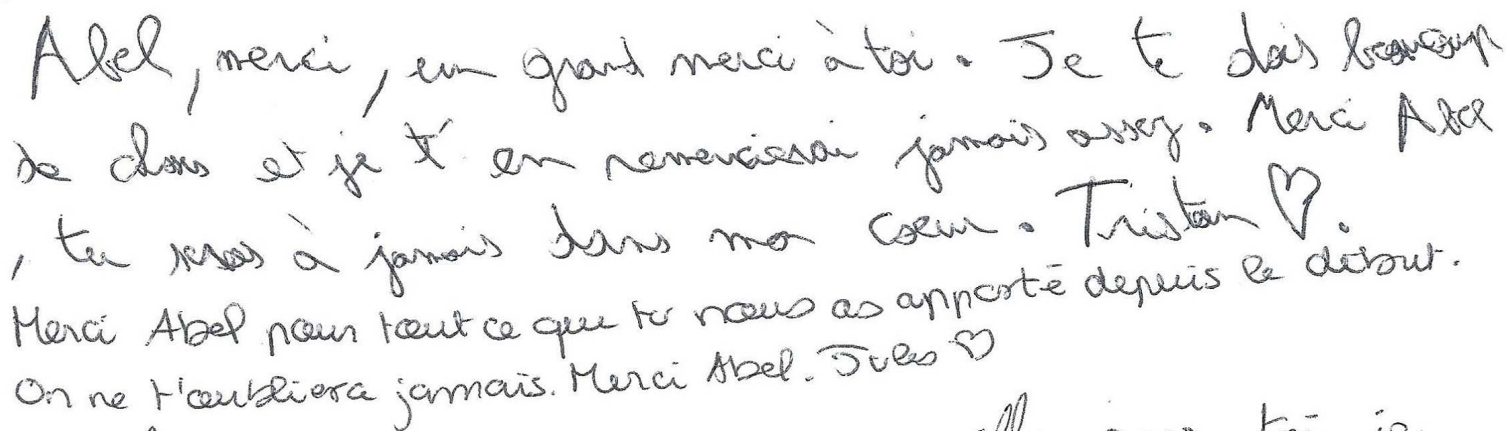 Abel, merci, un grand merci à toi. Je te dois beaucoup
de choses et je t'en remercierai jamais assez. Merci Abel
, tu seras à jamais dans mon coeur. Tristan ♡.
Merci Abel pour tout ce que tu nous as apporté depuis le début.
On ne t'oubliera jamais. Merci Abel. Jules ♡